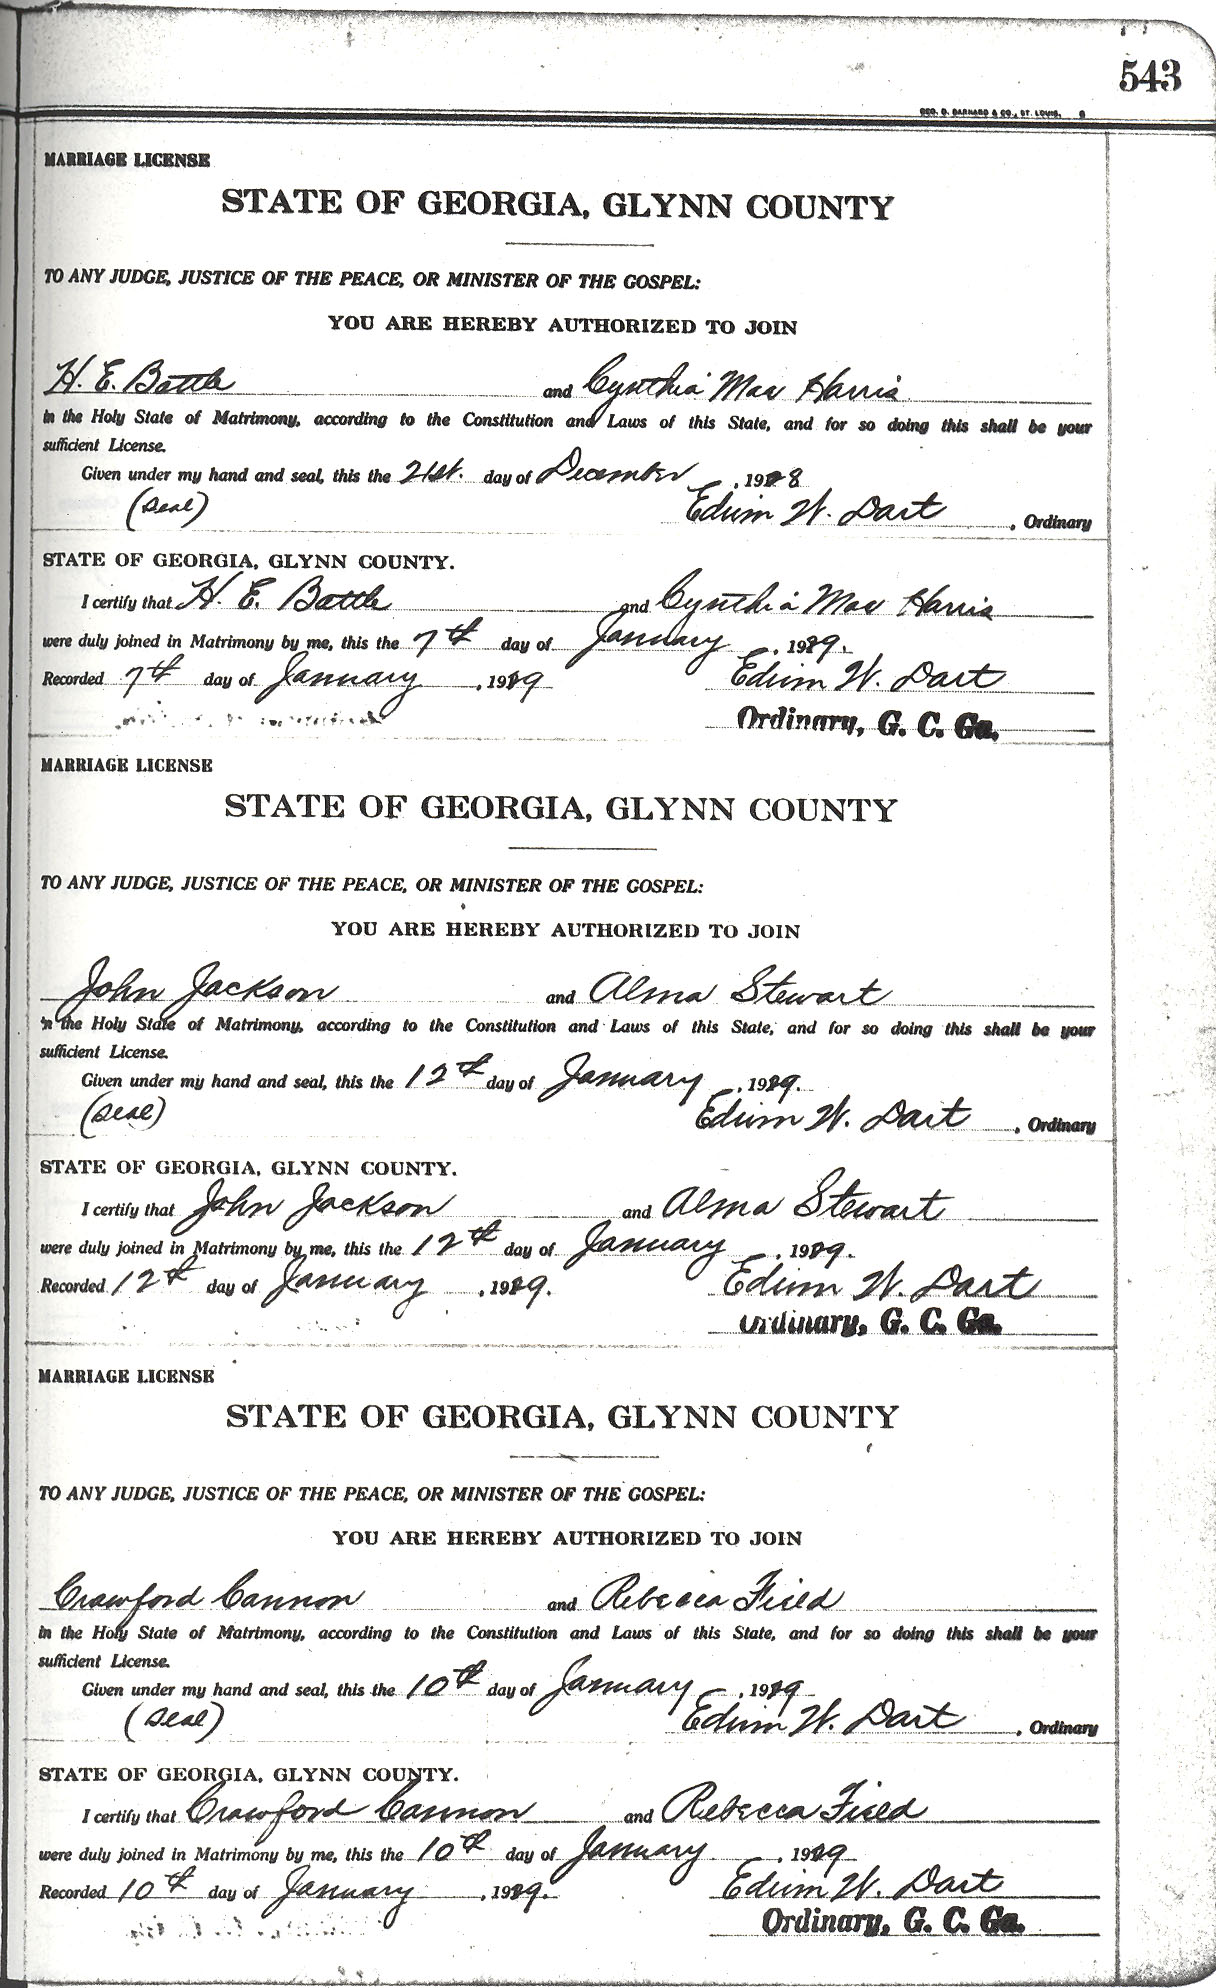 543
GEO. D. BARNARD & CO., ST. LOUIS.
MARRIAGE LICENSE
STATE OF GEORGIA, GLYNN COUNTY
TO ANY JUDGE, JUSTICE OF THE PEACE, OR MINISTER OF THE GOSPEL:
YOU ARE HEREBY AUTHORIZED TO JOIN
H. E. Battle and Cynthia Mae Harris
in the Holy State of Matrimony, according to the Constitution and Laws of this State, and for so doing this shall be your
sufficient License.
Given under my hand and seal, this the 21st. day of December, 1928
(Seal) Edwin W. Dart, Ordinary
STATE OF GEORGIA, GLYNN COUNTY.
I certify that H. E. Battle and Cynthia Mae Harris
were duly joined in Matrimony by me, this the 7th day of January, 1929.
Recorded 7th day of January, 1929 Edwin W. Dart
Ordinary, G. C. Ga.
MARRIAGE LICENSE
STATE OF GEORGIA, GLYNN COUNTY
TO ANY JUDGE, JUSTICE OF THE PEACE, OR MINISTER OF THE GOSPEL:
YOU ARE HEREBY AUTHORIZED TO JOIN
John Jackson and Alma Stewart
in the Holy State of Matrimony, according to the Constitution and Laws of this State, and for so doing this shall be your
sufficient License.
Given under my hand and seal, this the 12th day of January, 1929.
(Seal) Edwin W. Dart, Ordinary
STATE OF GEORGIA, GLYNN COUNTY.
I certify that John Jackson and Alma Stewart
were duly joined in Matrimony by me, this the 12th day of January, 1929.
Recorded 12th day of January, 1929. Edwin W. Dart
Ordinary, G. C. Ga.
MARRIAGE LICENSE
STATE OF GEORGIA, GLYNN COUNTY
TO ANY JUDGE, JUSTICE OF THE PEACE, OR MINISTER OF THE GOSPEL:
YOU ARE HEREBY AUTHORIZED TO JOIN
Crawford Cannon and Rebecca Field
in the Holy State of Matrimony, according to the Constitution and Laws of this State, and for so doing this shall be your
sufficient License.
Given under my hand and seal, this the 10th day of January, 1929
(Seal) Edwin W. Dart, Ordinary
STATE OF GEORGIA, GLYNN COUNTY.
I certify that Crawford Cannon and Rebecca Field
were duly joined in Matrimony by me, this the 10th day of January, 1929
Recorded 10th day of January, 1929. Edwin W. Dart
Ordinary, G. C. Ga.